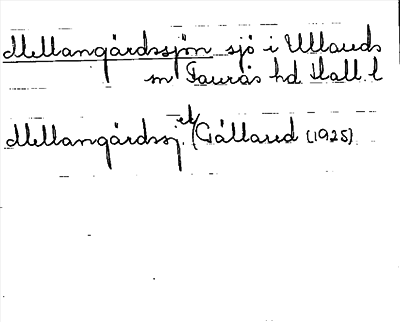 Mellangårdssjön sjö i Ullareds
sn Faurås hd Hall. l
Mellangårdssj. ek/Gällared (1925)